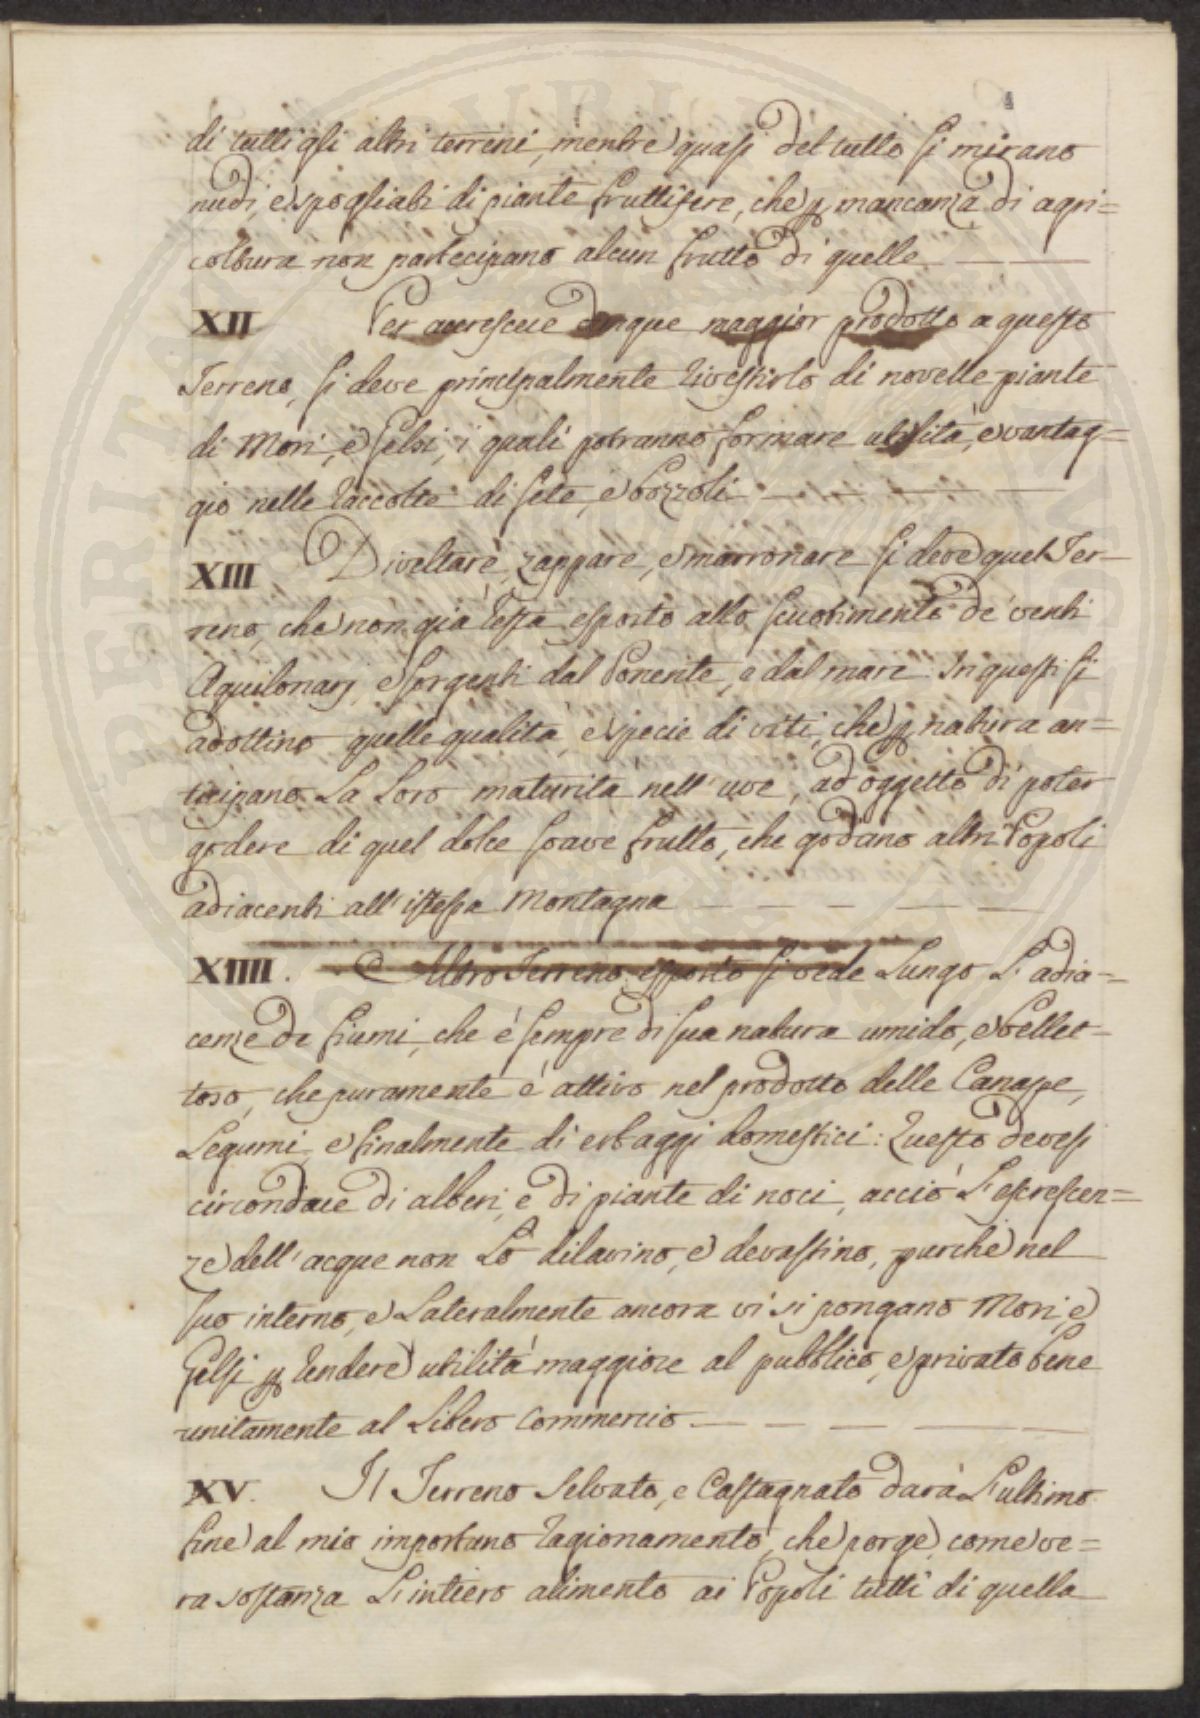 di tutti gli altri terreni, mentre quasi del tutto si mirano
nudi, e spogliati di piante fruttifere, che p mancanza di agri=
coltura non partecipano alcun frutto di quelle
XII Per accrescere dunque maggior prodotto a questo
Terreno, si deve principalmente rivestirlo di novelle piante
di Mori, e Gelsi, i quali potranno formare utilità, e vantag=
gio nelle raccolte di sete, e bozzoli
XIII Diveltare, zappare, e marronare si deve quel Ter=
reno, che non già resta esposto allo scuotimento de' venti
Aquilonarj, e sorgenti dal Ponente, e dal mare. In questi si
adottino quelle qualità, e specie di viti, che p natura an=
ticipano La Loro maturità nell' uve, ad oggetto di poter
godere di quel dolce soave frutto, che godano altri Popoli
adiacenti all' istessa Montagna
XIIII. Altro Terreno esposto si vede Lungo L' adia=
cenze de fiumi, che è sempre di sua natura umido, e bellet=
toso, che puramente è attivo nel prodotto delle Canape,
Legumi, e finalmente di erbaggi domestici: Questo devesi
circondare di alberi, e di piante di noci, acciò L' escrescen=
ze dell' acque non Lo dilavino, e devastino, purchè nel
suo interno, e Lateralmente ancora vi si pongano Mori, e
Gelsi p rendere utilità maggiore al pubblico, e privato bene
unitamente al Libero Commercio
XV. Il Terreno Selvato, e Castagnato darà L' ultimo
fine al mio importuno ragionamento, che porge, come ve=
ra sostanza L' intiero alimento ai Popoli tutti di quella